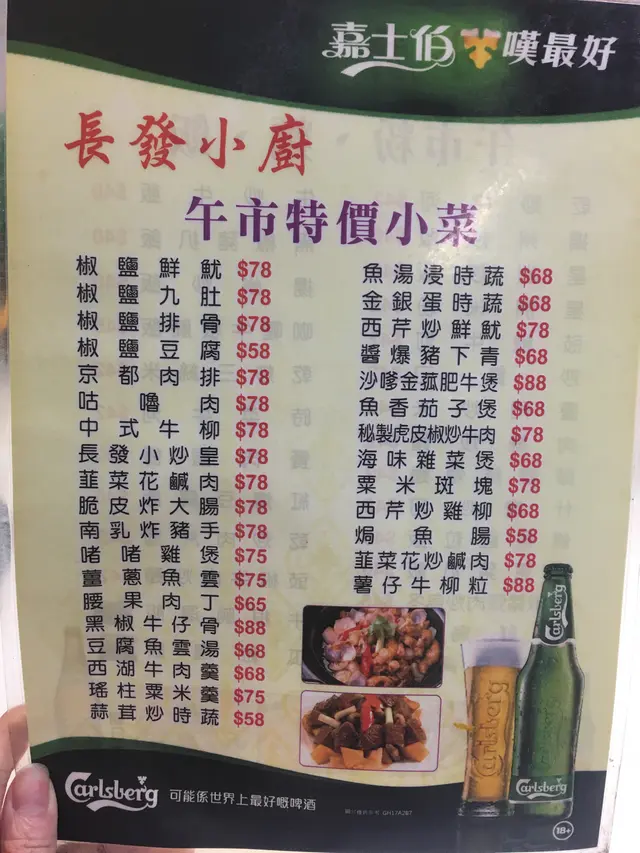 嘉士伯 嘆最好
長發小廚
午市特價小菜
椒鹽鮮魷 $78
椒鹽九肚 $78
椒鹽排骨 $78
椒鹽豆腐 $58
京都肉排 $78
咕嚕肉 $78
中式牛柳 $78
長發小炒皇 $78
韮菜花鹹肉 $78
脆皮炸大腸 $78
南乳炸豬手 $78
啫啫雞煲 $75
薑蔥魚雲 $75
腰果肉丁 $65
黑椒牛仔骨 $88
豆腐魚雲湯 $68
西湖牛肉羹 $68
瑤柱粟米羹 $75
蒜茸炒時蔬 $58
魚湯浸時蔬 $68
金銀蛋時蔬 $68
西芹炒鮮魷 $78
醬爆豬下青 $68
沙嗲金菰肥牛煲 $88
魚香茄子煲 $68
秘製虎皮椒炒牛肉 $78
海味雜菜煲 $68
粟米斑塊 $78
西芹炒雞柳 $68
焗魚腸 $58
韮菜花炒鹹肉 $78
薯仔牛柳粒 $88
Carlsberg
Carlsberg
Carlsberg
Carlsberg 可能係世界上最好嘅啤酒
18+